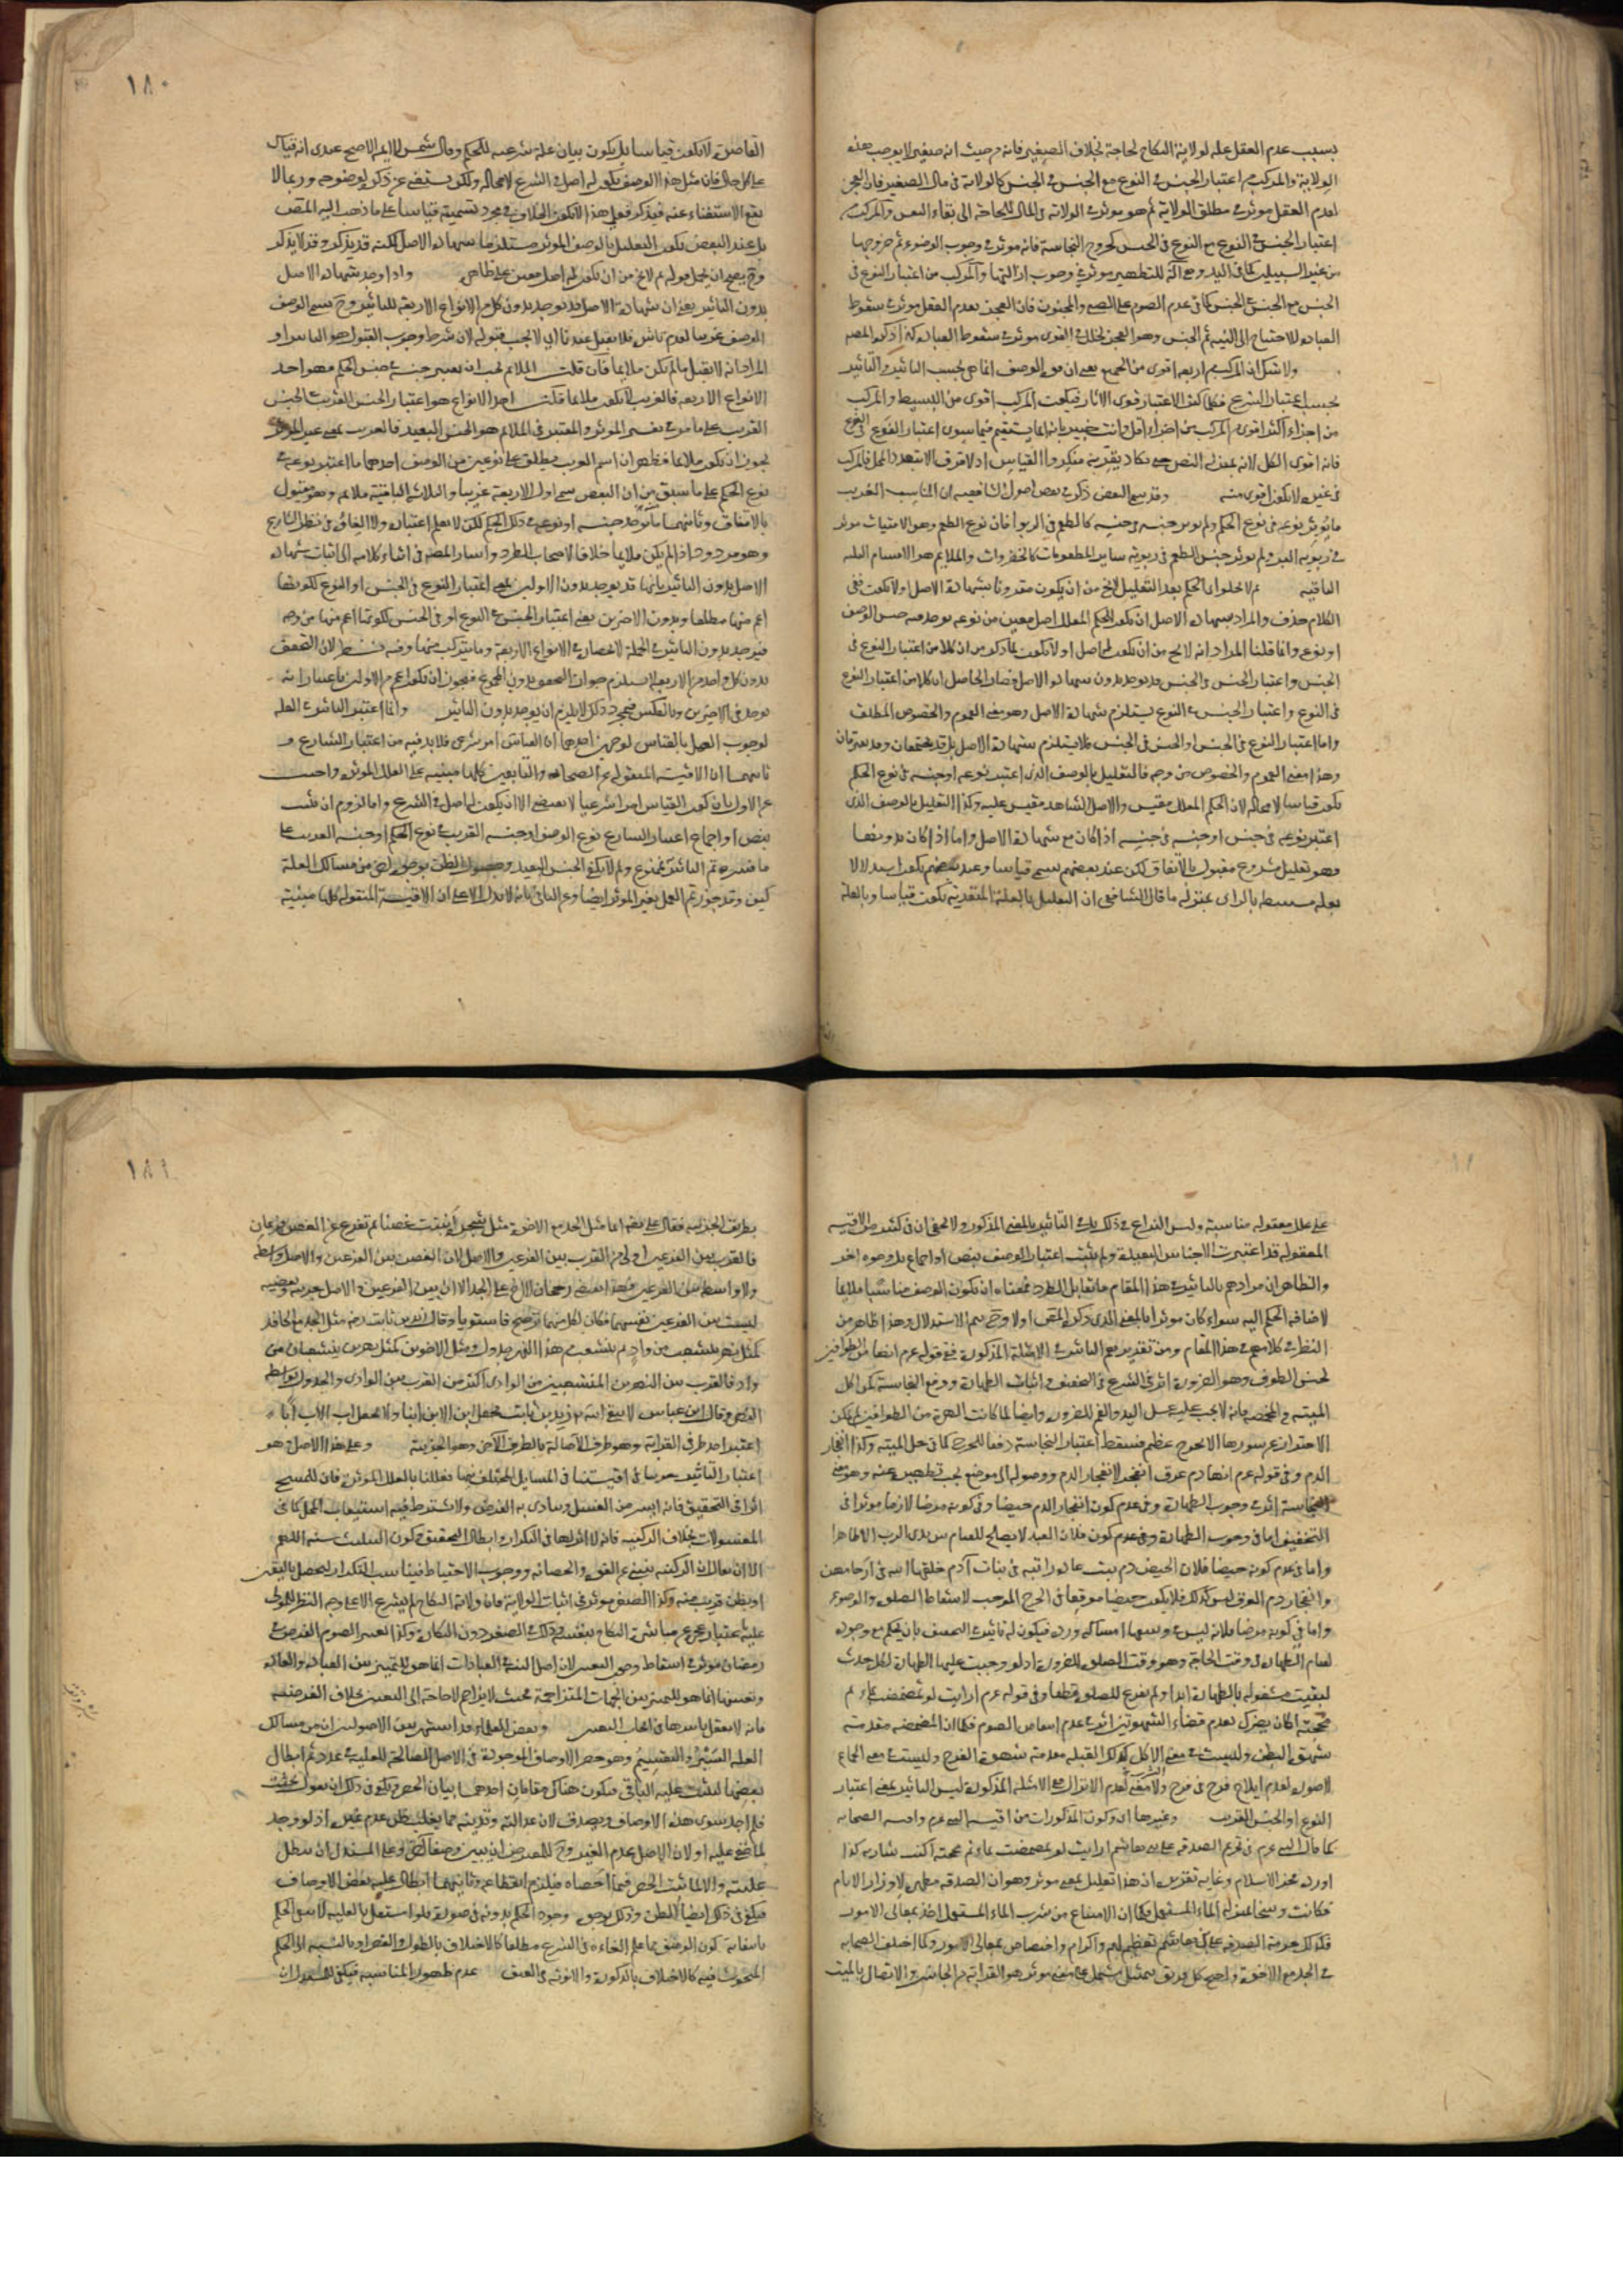 ١٨٠
بسبب عدم العقل علة لولاية النكاح لحاجة بخلاف الصغير فانه من حيث انه صغير لا يوجب هذه
الولاية والمركب من اعتبار الجنس في النوع مع الجنس في الجنس كالولاية في مال الصغير فان العجز
لعدم العقل موثر في مطلق الولاية ثم هو موثر في الولاية في المال للحاجة الى بقاء النفس والمركب من
اعتبار الجنس في النوع مع النوع في الجنس كخروج النجاسة فانه موثر في وجوب الوضوء ثم خروجها
من غير السبيلين كما في اليد وهي آلة للتطهير موثر في وجوب ازالتها والمركب من اعتبار النوع في
الجنس مع الجنس في الجنس كما في عدم الصوم على الصبي والمجنون فان العجز بعدم العقل موثر في سقوط
العبادة للاحتياج الى النية ثم الجنس وهو العجز لخلل في القوى موثر في سقوط العبادة كذا ذكره المصه
ولا شك ان المركب من اربعة اقوى من الجميع يعني ان قوة الوصف انما هي بحسب التاثير والتاثير
بحسب اعتبار الشرع فكلما كثر الاعتبار قوى الاثار فيكون المركب اقوى من البسيط والمركب
من اجزاء اكثر اقوى من المركب من اجزاء اقل وانت خبير بانه انما يستقيم فيما سوى اعتبار النوع في النوع
فانه اقوى الكل لانه بمنزلة النص حتى يكاد يقر به منكروا القياس اذ لا فرق الا بتعدد المحل فالمركب
في غيره لا يكون اقوى منه وقد سمى البعض ذكر في بعض اصول الشافعية ان المناسب الغريب
ما يؤثر نوعه في نوع الحكم ولم يوثر جنسه في جنسه كالطعم في الربوا فان نوع الطعم وهو الاقتيات موثر
في ربوية البر ولم يوثر جنس الطعم في ربوية ساير المطعومات كالخضروات والملايم هو الاقسام الثلثة
الباقية ثم لا يخلو اى الحكم بعد التعليل لا يخ من ان يكون مقرونا بشهادة الاصل اولا يكون ففي
الكلام حذف والمراد بشهادة الاصل ان يكون للحكم المعلل اصل معين من نوعه يوجد فيه جنس الوصف
او نوعه وانما قلنا المراد انه لا يخ من ان يكون له اصل او لا يكون لما ذكر من ان كلا من اعتبار النوع في
الجنس واعتبار الجنس في الجنس قد يوجد بدون شهادة الاصل فصار الحاصل ان كلا من اعتبار النوع
في النوع واعتبار الجنس في النوع يستلزم شهادة الاصل وهو معنى العموم والخصوص المطلق
واما اعتبار النوع في الجنس او الجنس في الجنس فلا يستلزم شهادة الاصل بل قد يجتمعان وقد يفترقان
وهذا معنى العموم والخصوص من وجه فالتعليل بالوصف الذي اعتبر نوعه او جنسه في نوع الحكم
يكون قياسا لا محالة لان الحكم المعلل مقيس والاصل الشاهد مقيس عليه وكذا التعليل بالوصف الذي
اعتبر نوعه في جنس او جنسه في جنسه اذا كان مع شهادة الاصل واما اذا كان بدونها
فهو تعليل مشروع مقبول بالاتفاق لكن عند بعضهم يسمى قياسا وعند بعضهم يكون استدلالا
بعلة مستنبطة بالراى بمنزلة ما قال الشافعي ان التعليل بالعلة المتعدية يكون قياسا وبالعلة
القاصرة لا يكون قياسا بل يكون بيان علة شرعية للحكم وقال شمس الايمة الاصح عندى انه قياس
على كل حال فان مثل هذا الوصف يكون له اصل في الشرع لا محالة ولكن يستغنى عن ذكره لوضوحه وربما لا
يقع الاستغناء عنه فيذكر فعلى هذا لا يكون الخلاف في مجرد تسميته قياسا على ما ذهب اليه المصه
بل عند البعض يكون التعليل بالوصف الموثر مستلزما شهادة الاصل لكنه قد يذكر وقد لا يذكر
وح يصح ان يحمل قوله ثم لا يخ من ان يكون له اصل معين على ظاهره واذا وجد شهادة الاصل
بدون التاثير يعني ان شهادة الاصل قد توجد بدون كل من الانواع الاربعة للتاثير وح يسمى الوصف
الوصف غريبا لعدم تاثيره فلا يقبل عندنا اى لا يجب قبوله لان شرط وجوب القبول هو التاثير او
المراد انه لا يقبل ما لم يكن ملايما فان قلت الملايم يجب ان يعتبر جنسه في جنس الحكم فهو احد
الانواع الاربعة فالغريب لا يكون ملايما قلت احد الانواع هو اعتبار الجنس القريب في الجنس
القريب على ما مر في تفسير الموثر والمعتبر في الملايم هو الجنس البعيد فالغريب بمعنى غير الموثر
يجوز ان يكون ملايما فظهر ان اسم الغريب يطلق على نوعين من الوصف احدهما ما اعتبر نوعه في
نوع الحكم على ما سبق من ان البعض سمى اول الاربعة غريبا والثلاثة الباقية ملايمة وهو مقبول
بالاتفاق وثانيهما ما يوجد جنسه او نوعه في ذلك الحكم لكن لا يعلم اعتباره ولا الغاؤه في نظر الشارع
وهو مردود اذا لم يكن ملايما خلافا لاصحاب الطرد واشار المصه في اثناء كلامه الى اثبات شهادة
الاصل بدون التاثير بانها قد توجد بدون الاولين يعني اعتبار النوع في الجنس او النوع لكونها
اعم منهما مطلقا وبدون الاخرين يعني اعتبار الجنس في النوع او في الجنس لكونها اعم منهما من وجه
فتوجد بدون التاثير في الجملة لانحصاره في الانواع الاربعة وما يتركب منها وفيه نظر لان التحقق
بدون كل واحد من الاربعة لا يستلزم جواز التحقق بدون المجموع فيجوز ان يكون اعم من الاولين باعتبار انه
يوجد في الاخرين وبالعكس فبمجرد ذلك لا يلزم ان يوجد بدون التاثير وانما اعتبر التاثير في العلة
لوجوب العمل بالقياس لوجهين احدهما ان القياس امر شرعي فلا بد فيه من اعتبار الشارع و
ثانيهما ان الاقيسة المنقولة عن الصحابة والتابعين كلها مبنية على العلل الموثرة واجيب
عن الاول بان كون القياس امرا شرعيا لا يقتضي الا ان يكون له اصل في الشرع واما لزوم ان يثبت
بنص او اجماع اعتبار الشارع نوع الوصف او جنسه القريب في نوع الحكم او جنسه القريب على
ما فسرتم التاثير فممنوع ولم لا يكفي الجنس البعيد وحصول الظن بوجوه اخر من مسالك العلة
كيف وقد جوزتم العمل بغير الموثر ايضا وعن الثاني بانه لا يدل الا على ان الاقيسة المنقولة كلها مبنية
١٨١
على علل معقولة مناسبة وليس النزاع في ذلك بل في التاثير بالمعنى المذكور ولا يخفى ان في كثير من الاقيسة
المعقولة قد اعتبرت الاجناس البعيدة ولم يثبت اعتبار الوصف بنص او اجماع بل بوجوه اخر
والظاهر ان مرادهم بالتاثير في هذا المقام ما يقابل الطرد فمعناه ان يكون الوصف مناسبا ملايما
لاضافة الحكم اليه سواء كان موثرا بالمعنى الذي ذكره المصه اولا وح يتم الاستدلال وهذا ظاهر من
النظر في كلامهم في هذا المقام ومن تقديرهم التاثير في الامثلة المذكورة ففي قوله عم انها من الطوافين
لجنس الطوف وهو الضرورة اثر في الشرع في التخفيف واثبات الطهارة ورفع النجاسة كمن اكل
الميتة في المخمصة فانه لا يجب عليه غسل اليد والفم للضرورة وايضا لما كانت الهرة من الطوافين لم يمكن
الاحتراز عن سورها الا بحرج عظيم فسقط اعتبار النجاسة دفعا للحرج كما في حل الميتة وكذا انفجار
الدم وفي قوله عم انها دم عرق انفجر لانفجار الدم ووصوله الى موضع يجب تطهيره عنه وهو معنى
النجاسة اثر في وجوب الطهارة وفي عدم كون انفجار الدم حيضا وفي كونه مرضا لازما موثرا في
التخفيف اما في وجوب الطهارة وفي عدم كون فلان العبد لا يصلح للقيام بين يدى الرب الا طاهرا
واما في عدم كونه حيضا فلان الحيض دم بيت عادة راتبة في بنات آدم خلقها الله في ارحامهن
وانفجار دم العرق ليس كذلك فلا يكون حيضا موقعا في الحرج الموجب لاسقاط الصلوة والوضوء
واما في كونه مرضا فلانه ليس في وسعها امساكه ورده فيكون له تاثير في التخفيف بان يحكم مع وجوده
لقيام الطهارة في وقت الحاجة وهو وقت الصلوة للضرورة اذ لو وجبت عليها الطهارة لكل حدث
لبقيت مشغولة بالطهارة ابدا ولم تفرغ للصلوة قطعا وفي قوله عم ارايت لو تمضمضت بماء ثم
مججته اكان يضرك لعدم قضاء الشهوتين اثر في عدم انتقاض الصوم فكما ان المضمضة مقدمة
شهوة البطن وليست في معنى الاكل كذلك القبلة مقدمة شهوة الفرج وليست في معنى الجماع
لا صورة لعدم ايلاج فرج في فرج ولا معنى لعدم الانزال مع الامثلة المذكورة ليس التاثير بمعنى اعتبار
النوع او الجنس القريب وغيرها اى وكون المذكورات من اقيسة النبي عم واقيسة الصحابة
كما قال النبي عم في تحريم الصدقة على بني هاشم ارايت لو تمضمضت بماء ثم مججته اكنت شاربه كذا
اورده فخر الاسلام وغاية تقريره ان هذا تعليل بمعنى موثر وهو ان الصدقة مطهرة لاوزار الاثام
فكانت وسخا بمنزلة الماء المستعمل فكما ان الامتناع من شرب الماء المستعمل اخذ بمعالي الامور
فكذلك حرمة الصدقة على بني هاشم تعظيم لهم واكرام واختصاص بمعالي الامور وكما اختلف الصحابة
في الجد مع الاخوة واحتج كل فريق بتمثيل يشتمل على معنى موثر هو القرابة من الجانبين والاتصال بالميت
بطريق الجزئية فقال علي رضه انما مثل الجد مع الاخوة مثل شجرة انبتت غصنا ثم تفرع عن الغصن فرعان
فالقرب بين الفرعين اولى من القرب بين الفرعين والاصل لان الغصن بين الفرعين والاصل واسطة
ولا واسطة بين الفرعين فهذا يقتضي رجحان الاخ على الجد الا ان بين الفرعين والاصل جزئية وبعضية
ليست بين الفرعين نفسهما فكان لكل منهما ترجيح فاستويا وقال زيد بن ثابت رضه مثل الجد مع الحافد
كمثل نهر ينشعب من واد ثم ينشعب من هذا النهر جدول ومثل الاخوين كمثل نهرين ينشعبان من
واد فالقرب بين النهرين المنشعبين من الوادى اكثر من القرب بين الوادى والجدول بواسطة
النهر وقال ابن عباس الا يتقي الله زيد بن ثابت يجعل ابن الابن ابنا ولا يجعل اب الاب ابا
اعتبر احد طرفي القرابة وهو طرف الاصالة بالطرف الاخر وهو الجزئية وعلى هذا الاصل هو
اعتبار التاثير جرينا في اقيستنا في المسايل المختلف فيها فعللنا بالعلل الموثرة فان للمسح
اثرا في التخفيف فانه ايسر من الغسل ويتادى به الفرض ولا يشترط فيه استيعاب المحل كما في
المغسولات بخلاف الركنية فانه لا اثر لها في التكرار وابطال التخفيف في كون التثليث سنة اللهم
الا ان يقال ان الركنية تنبئ عن القوة والحصانة ووجوب الاحتياط فيناسب التكرار ليحصل باليقين
او بظن قريب منه وكذا الصغر موثر في اثبات الولاية فان ولاية النكاح لم يشرع الا على وجه النظر للمولى
عليه باعتبار عجزه عن مباشرة النكاح بنفسه وذلك في الصغر دون البكارة وكذا تعين الصوم الفرض في
رمضان موثر في اسقاط وجوب التعيين لان اصل النية في العبادات انما هو للتمييز بين العبادة والعادة
وتعينها انما هو للتمييز بين الجهات المتزاحمة فحيث لا تزاحم لا حاجة الى التعيين بخلاف الفرضية
فانه لا يعقل تاثيرها في ايجاب التعيين وبعض العلماء قد اشتهر بين الاصوليين ان من مسالك
العلة السبر والتقسيم وهو حصر الاوصاف الموجودة في الاصل الصالحة للعلية في عدد ثم ابطال
بعضها ليثبت علية الباقي فيكون هناك مقامان احدهما بيان الحصر ويكفي في ذلك ان يقول بحثت
فلم اجد سوى هذه الاوصاف ويصدق لان عدالته وتدينه مما يغلب ظن عدم غيره اذ لو وجد
لما خفي عليه او لان الاصل عدم الغير وح للمعترض ان يبين وصفا آخر وعلى المستدل ان يبطل
عليته والا لما ثبت الحصر فيما احصاه فيلزم انقطاعه وثانيهما ابطال علية بعض الاوصاف
ويكفي في ذلك ايضا الظن وذلك بوجوه وجود الحكم بدونه في صورة فلو استقل بالعلية لانتفى الحكم
بانتفائه كون الوصف مما علم الغاءه في الشرع مطلقا كالاختلاف بالطول والقصر او بالنسبة الى الحكم
المبحوث فيه كالاختلاف بالذكورة والانوثة في العتق عدم ظهور المناسبة فيكفي للمستدل ان